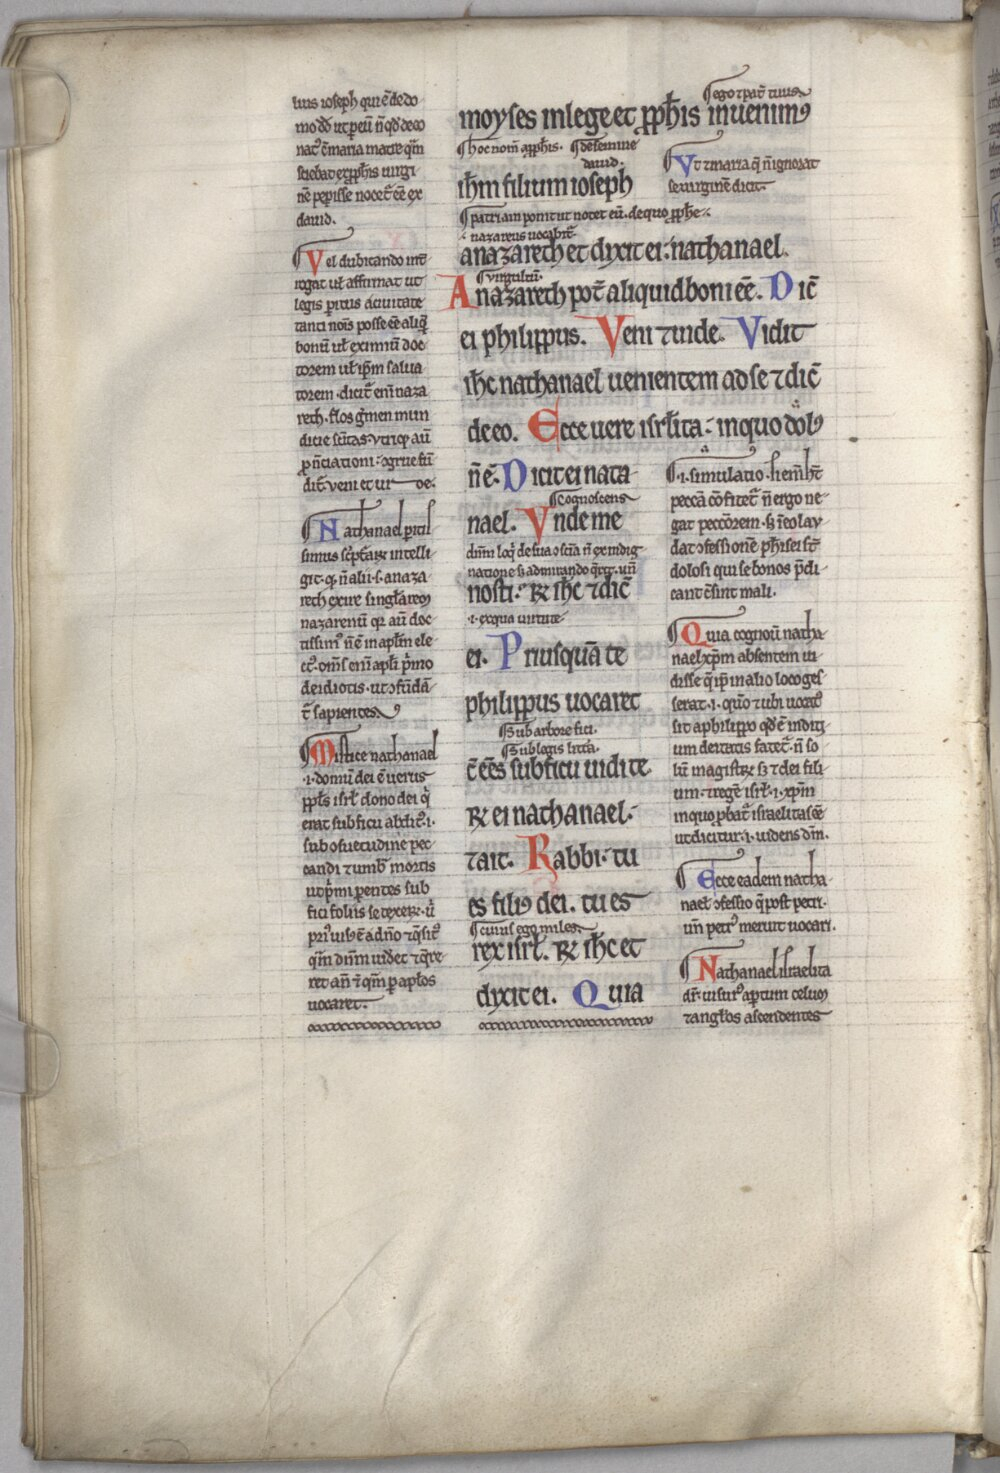 lius ioseph qui ē de do
mo dd ut p eū n̄ qd de eo
nat᷒ ē maria matre q̄m
sciebat ex pphis uirgi
nē pepisse nocet᷑ eē ex
dauid.
Vel dubicando int̄
rogat ul̄ affirmat ut
legis pitus a ciuitate
tanti nōis posse eē aliq̄
bonū ul̄ eximiū doc
torem ul̄ ip̄m salua
torem. dicit᷑ eni naza
reth. flos ḡmen mun
dicie
p̄nūciationi. ɔgrue
dit᷑. veni et ui de.
Nathanael pitis
simus sc̄ptaꝝ intelli
git. q. n̄ alii. s. a naza
reth exire singlarem
nazarenū qꝛ aū doc
tissim᷒ n̄ ē in aplm ele
ct᷒. om̄s eni apli p̄mo
de idiotis. ut ɔfūdā
t᷑ sapientes.
Mistice nathanael
.i. donū dei ē uerus
ppls isrl dono dei q̄
erat sub ficu abdit᷒. i.
sub ɔsuetudine pec
candi ⁊ umb᷑ mortis
ut p̄mi pentes sub
fici foliis se texeꝝ. u̇
pri᷒ uis᷒ ē a dn̄o ⁊ q̄sit᷒
q̄m dn̄m uidet ⁊ q̄re
ret an̄ ⁊ q̄m p aplos
uocaret.
ego ⁊ frat᷑ tuus
moyses in lege et pphis inuenim᷒
hoc nom̄ a pphis. de semine
dauid.
ih̄m filium ioseph
patriam ponit ut notet eū. de quo pphe
nazareus uocabit᷑
a nazareth et dixit ei. nathanael.
A nazareth pot᷑ aliquid boni eē. Dic̄
ei philippus. Veni ⁊ uide. Vidit
ih̄c nathanael uenientem ad se ⁊ dic̄
de eo. Ecce uere isrl̄ita. in quo dol᷒
n̄ ē. Dicit ei nata
cognoscens
nael. Vnde me
dn̄m loq̄ de sua ɔscīa n̄ ex indig
natione s; admirando q̄rit. un̄
nosti. ꝶ ih̄c ⁊ dic̄
.i. ex qua uirtute
ei. Priusquā te
philippus uocaret
Sub arbore fici.
Sub legis litt᷑a.
c̄ eēs sub ficu uidi te.
ꝶ ei nathanael.
⁊ ait. Rabbi. tu
es fili᷒ dei. tu es
cuius ego miles.
rex isrl. ꝶ ih̄c et
dixit ei. Quia
Vt ⁊ maria q̄ n̄ ignorat
se uirginē dicit.
.i. simulatio.
peccā ɔfitet᷑ n̄ ergo ne
gat peccōrem. s; n̄eo lau
dat ɔfessionē. phisei st̄
dolosi qui se bonos p̄di
cant c̄ sint mali.
Quia cognouī natha
nael xp̄m absentem ui
disse q̄ ip̄e in alio loco ges
serat. i. quō ⁊ ubi uocat᷒
sit a philippo qd ē indici
um deitatis fatet᷑. n̄ so
lū magistꝝ s; ⁊ dei fili
um. ⁊ regē isrl. i. xp̄m
in quo pbat᷑ israelita eē
ut dicitur. i. uidens dm̄.
Ecce eadem natha
nael ɔfessio q̄ post petri.
un̄ petr᷒ meruit uocari.
Nathanael israelita
dr᷑. uisur᷒ aptum celum
⁊ anglos ascendentes